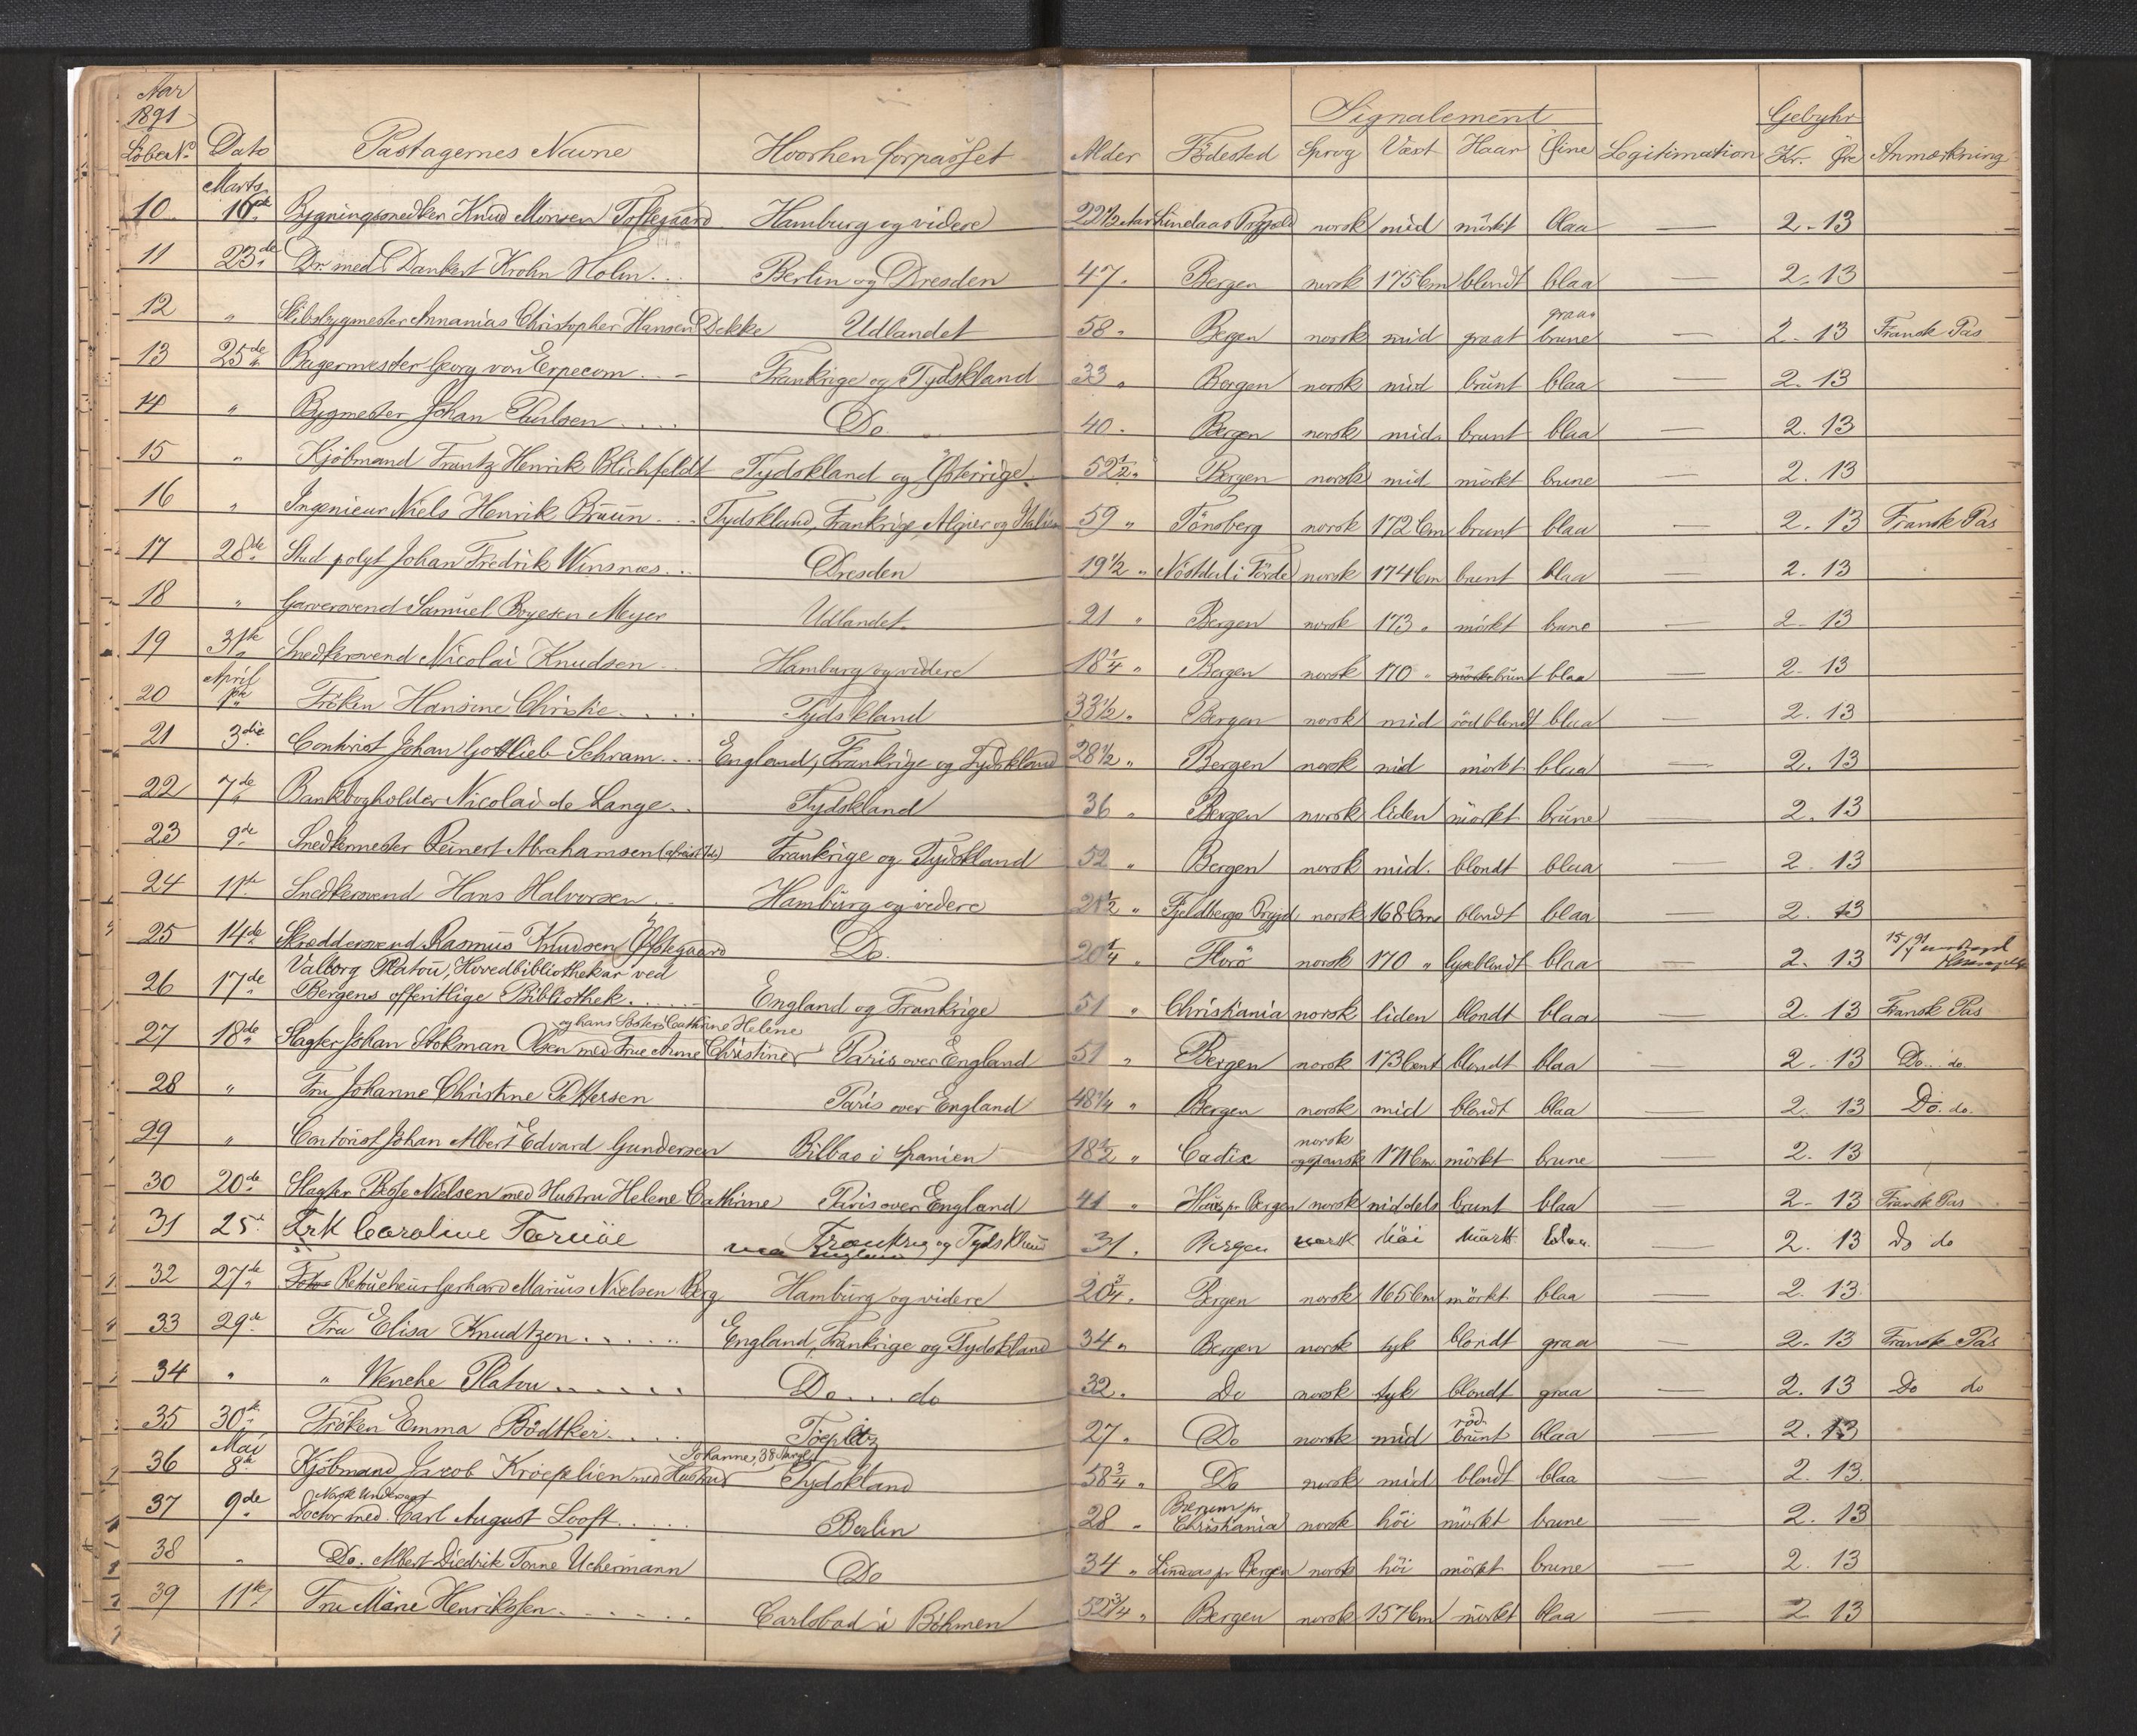 Aar
1891
Löbe No. Dato Pastagernes Navne Hvorhen forpasset Alder Födested Signalement Sprog Væxt Haar Öine Legitimation Gebyhr Kr. Öre Anmærkning
Marts
10 16de Bygningssnedker Knud Monsen Toftegaard Hamburg og videre 22 1/2 Aar Lindaas Prgjeld norsk mid mörkt blaa — 2. 13
11 23de Dr. med. Dankert Krohn Holm Berlin og Dresden 47 Bergen norsk 175 Cm blondt blaa — 2. 13
12 " Skibsbygmester Annanias Christopher Hansen Dekke Udlandet 58 " Bergen norsk mid graat graa brune — 2. 13 Fransk Pas
13 25de Bagermester Georg von Erpecom Frankrige og Tydskland 33 " Bergen norsk mid brunt blaa — 2. 13
14 " Bygmester Johan Paulsen Do. 40 Bergen norsk mid. brunt blaa — 2. 13
15 " Kjöbmand Frantz Henrik Blichfeldt Tydskland og Østerrige 52 1/2 " Bergen norsk mid mörkt brune — 2. 13
16 " Ingenieur Niels Henrik Bruun Tydskland, Frankrige, Algier og Italien 59 " Tönsberg norsk 172 Cm brunt blaa — 2. 13 Fransk Pas
17 28de Stud polyt Johan Fredrik Winsnes Dresden 19 1/2 " i Förde norsk 174 Cm brunt blaa — 2. 13
18 " Garversvend Samuel Boyesen Meyer Udlandet 21 " Bergen norsk 173 " mörkt brune — 2. 13
19 31te Snedkersvend Nicolai Knudsen Hamburg og videre 18 1/4 " Bergen norsk 170 " mörkebrunt blaa — 2. 13
April
20 1ste Fröken Hansine Christie Tydskland 33 1/2 " Bergen norsk mid rödblondt blaa — 2. 13
21 3die Contorist Johan Gottlieb Schram England, Frankrige og Tydskland 28 1/2 " Bergen norsk mid mörkt blaa — 2. 13
22 7de Bankbogholder Nicolai de Lange Tydskland 36 " Bergen norsk liden mörkt brune — 2. 13
23 9de Snedkermester Reinert Abrahamsen Frankrige og Tydskland 52 " Bergen norsk mid. blondt blaa — 2. 13
24 11te Snedkersvend Hans Halvorsen Hamburg og videre 21 1/2 " Fjeldbergs Prgjd norsk 168 Cm blondt blaa — 2. 13
25 14de Skræddersvend Rasmus Knudsen Öfstegaard Do. 20 1/4 " Florö norsk 170 " lyseblondt blaa — 2. 13 15/4 91
Valborg Platou, Hovedbibliothekar ved
26 17de Bergens offentlige Bibliothek England og Frankrige 51 " Christiania norsk liden blondt blaa — 2. 13 Fransk Pas
og hans Söster Cathrine Helene
27 18de Slagter Johan Stokman Olsen med Frue Anne Christine Paris over England 51 " Bergen norsk 173 Cent blondt blaa — 2. 13 Do. do.
28 " Fru Johanne Christine Pettersen Paris over England 48 1/4 " Bergen norsk mid blondt blaa — 2. 13 Do. do.
29 " Contorist Johan Albert Edvard Gundersen Bilbao i Spanien 18 1/2 " Cadix norsk og spansk 171 Cm. mörkt brune — 2. 13
30 20de Slagter Nielsen med Hustru Helene Cathrine Paris over England 41 " Haus pr Bergen norsk middels brunt blaa — 2. 13 Fransk Pas
31 25. Frk Caroline via England Frankrig og Tydskland 31. Bergen norsk höi mörk blaa. — 2. 13 do do
32 27de Retoucheur Gerhard Marius Nielsen Berg Hamburg og videre 20 3/4 " Bergen norsk 165 Cm mörkt blaa — 2. 13
33 29de Fru Elisa Knudtzon England, Frankrige og Tydskland 34 " Bergen norsk tyk blondt graa — 2. 13 Fransk Pas
34 " " Wenche Platou Do do 32. Do norsk tyk blondt graa — 2. 13 Do do
35 30te Fröken Emma Bödtker Toeplitz 27. Do norsk mid röd brunt blaa — 2. 13
Mai Johanne, 38 Aar gl
36 8de Kjöbmand Jacob Kroepelien med Hustru Tydskland 58 3/4 " Do norsk mid blondt blaa — 2. 13.
Norsk Undersaat
37 9de Doctor med. Carl August Looft Berlin 28 " Bærum pr Christiania norsk höi mörkt brune — 2. 13
38 " Do. Albert Diedrik Tonne Uchermann Do 34 " Lindaas pr Bergen norsk höi mörkt brune — 2. 13
39 11te Fru Marie Henriksen Carlsbad i Böhmen 52 3/4 " Bergen norsk 157 Cm mörkt blaa — 2 13